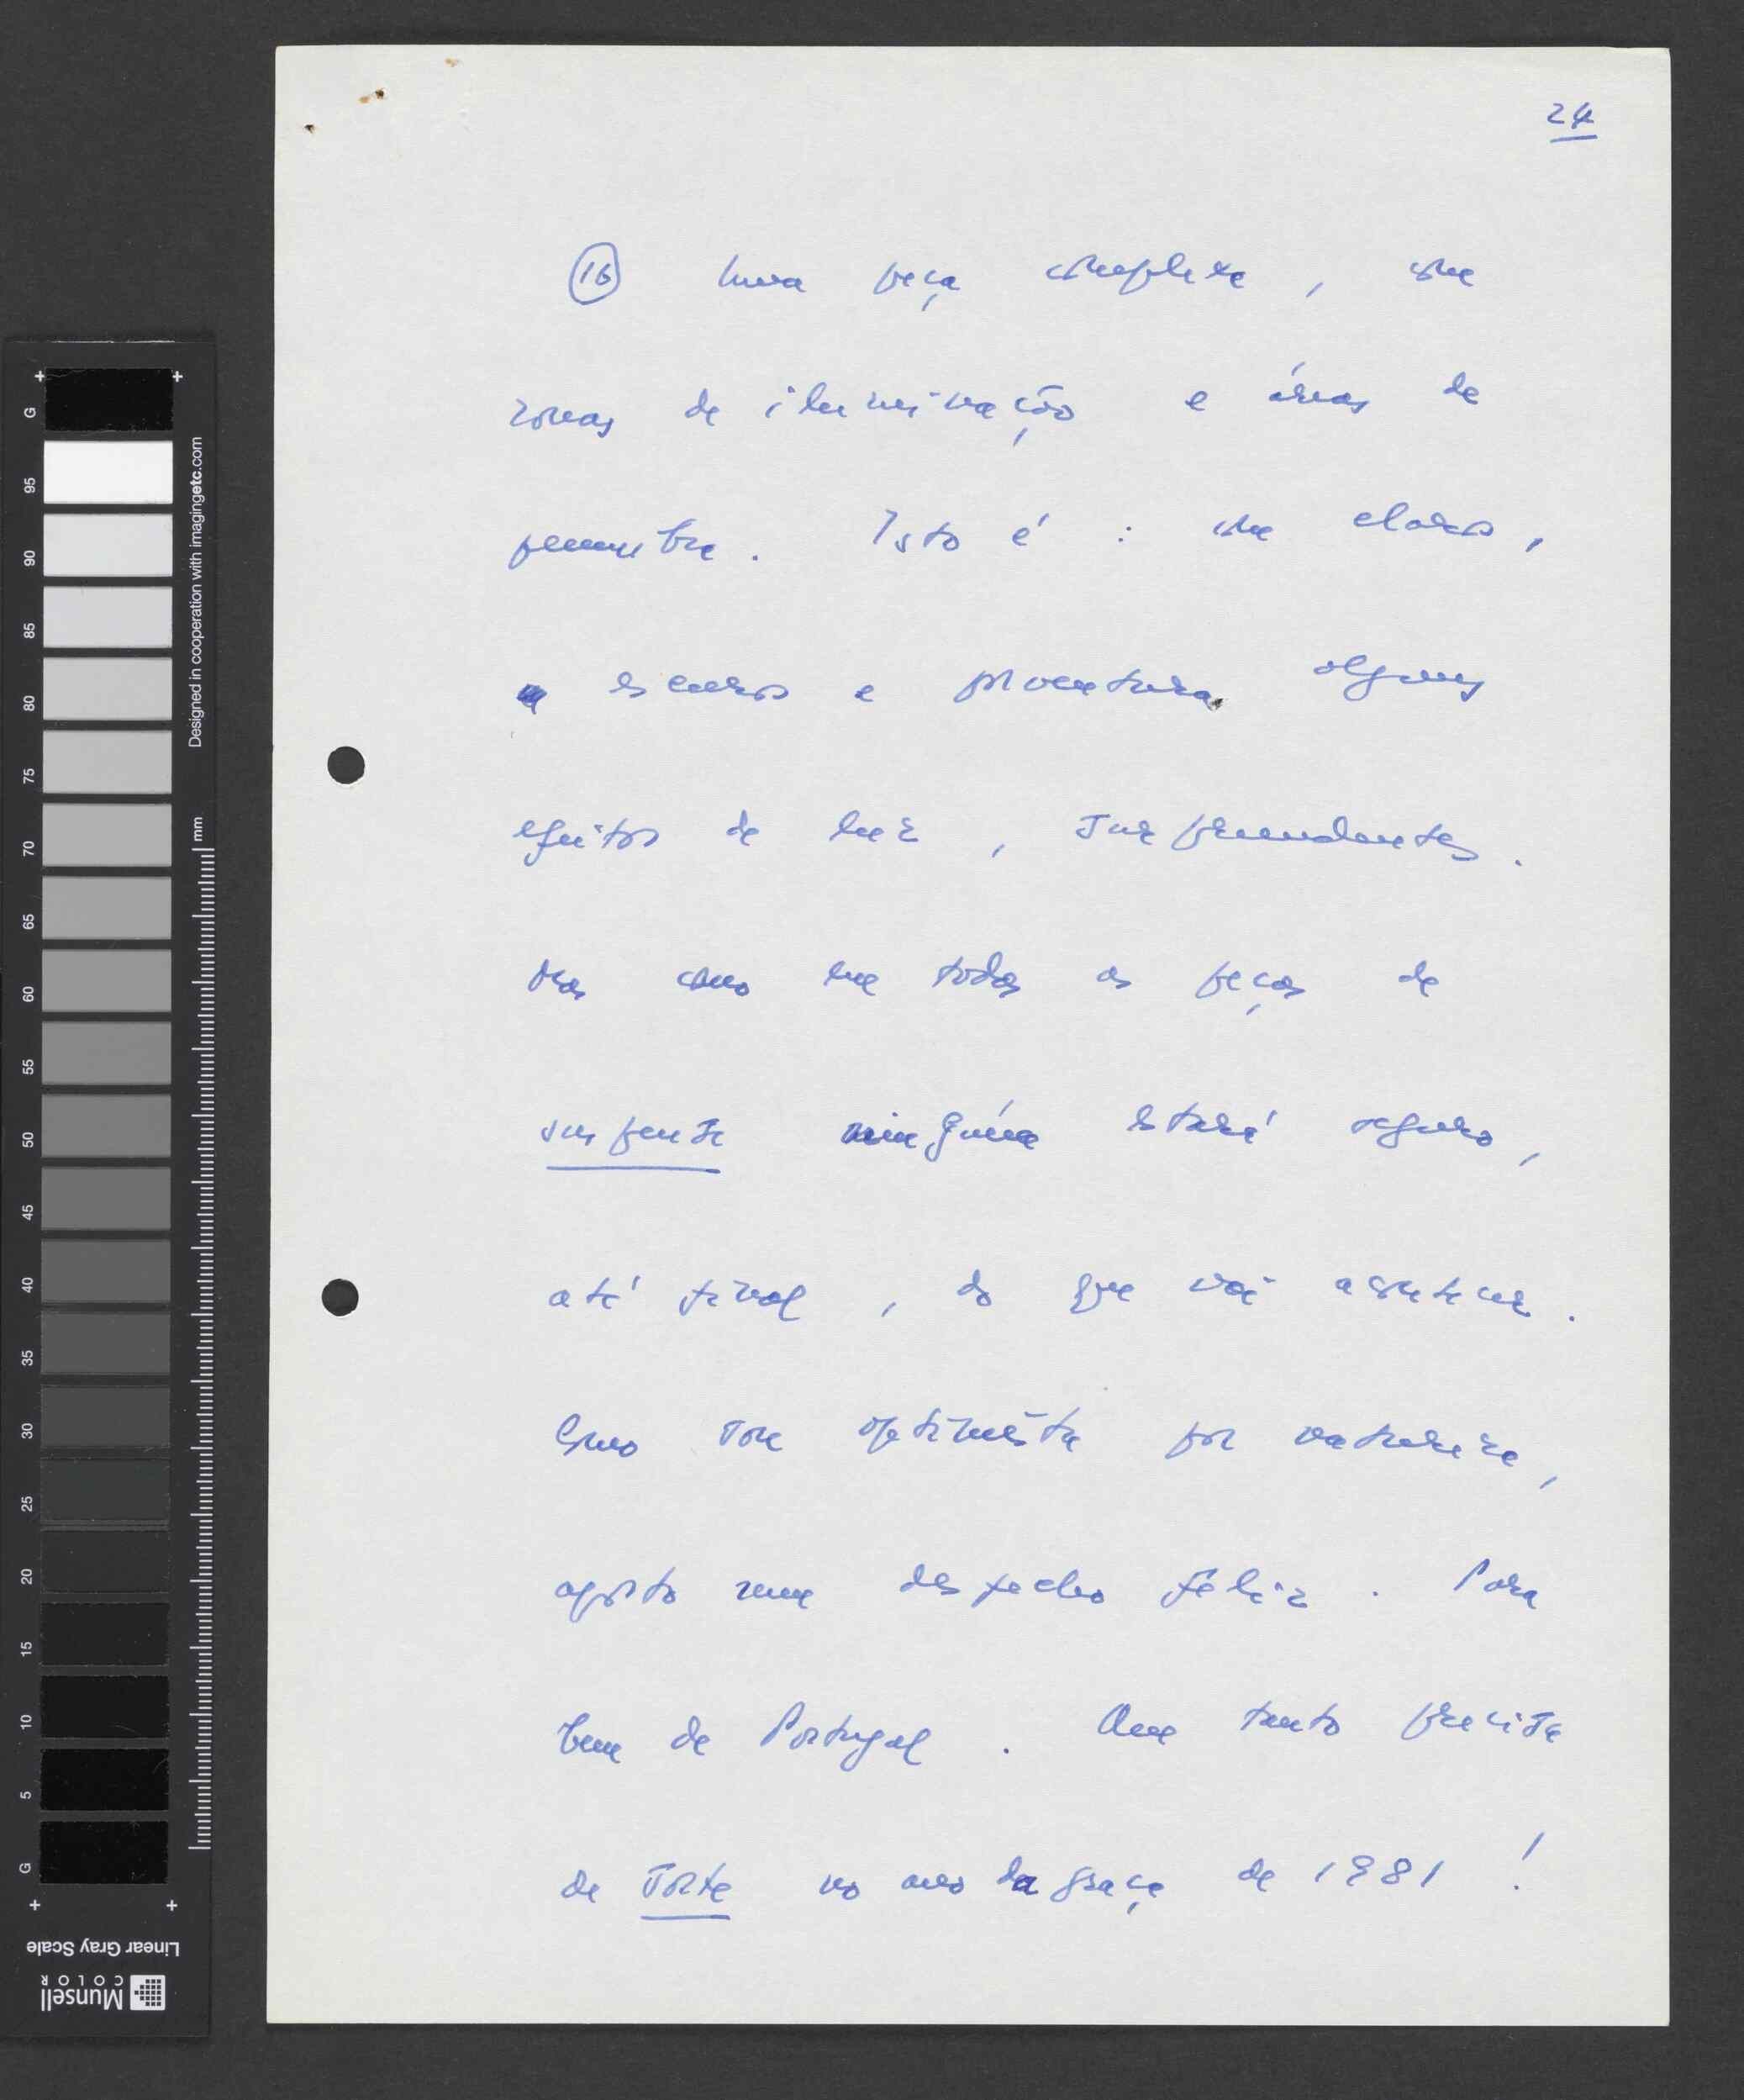 24
16 Numa peça complexa, com
zonas de iluminação e áreas de
penumbra. Isto é: com claros,
escuros e porventura alguns
efeitos de luz, surpreendentes.
Mas como em todas as peças de
suspense ninguém estará seguro,
até final, do que vai acontecer.
Como sou optimista por natureza,
aposto num desfecho feliz. Para
bem de Portugal. Que tanto precisa
de sorte no ano da graça de 1981!
G
95
90
85
80
75
70
65
60
55
50
45
40
35
30
25
20
15
10
5
G
Designed in cooperation with imagingetc.com
mm
Linear Gray Scale
Munsell
COLOR